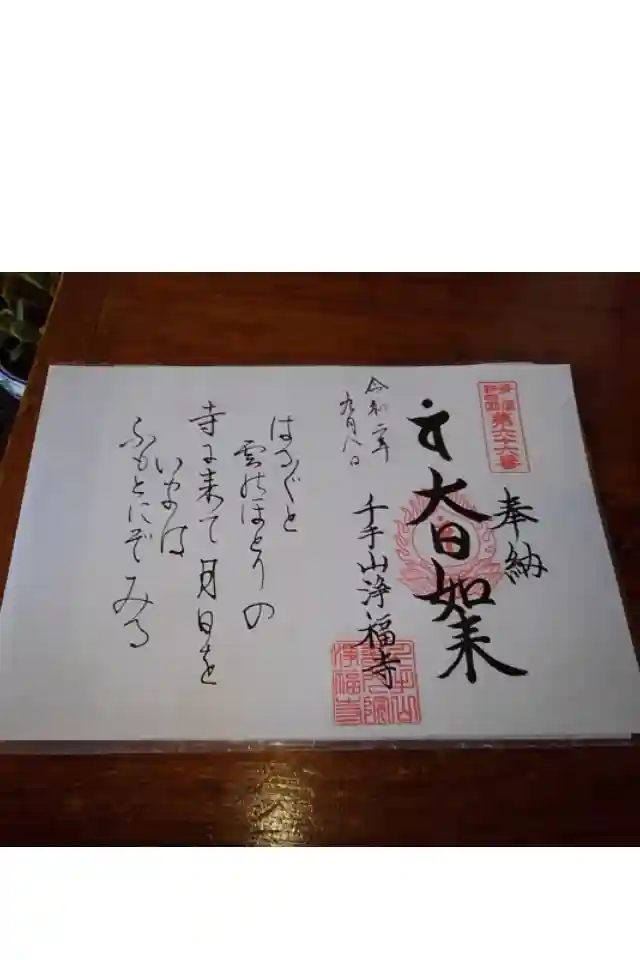 多摩
新四国
第六十六番
奉納
大日如来
令和二年
九月八日
千手山浄福寺
はるばると
雲のほとりの
寺に来て月日を
いまは
ふもとにぞみる